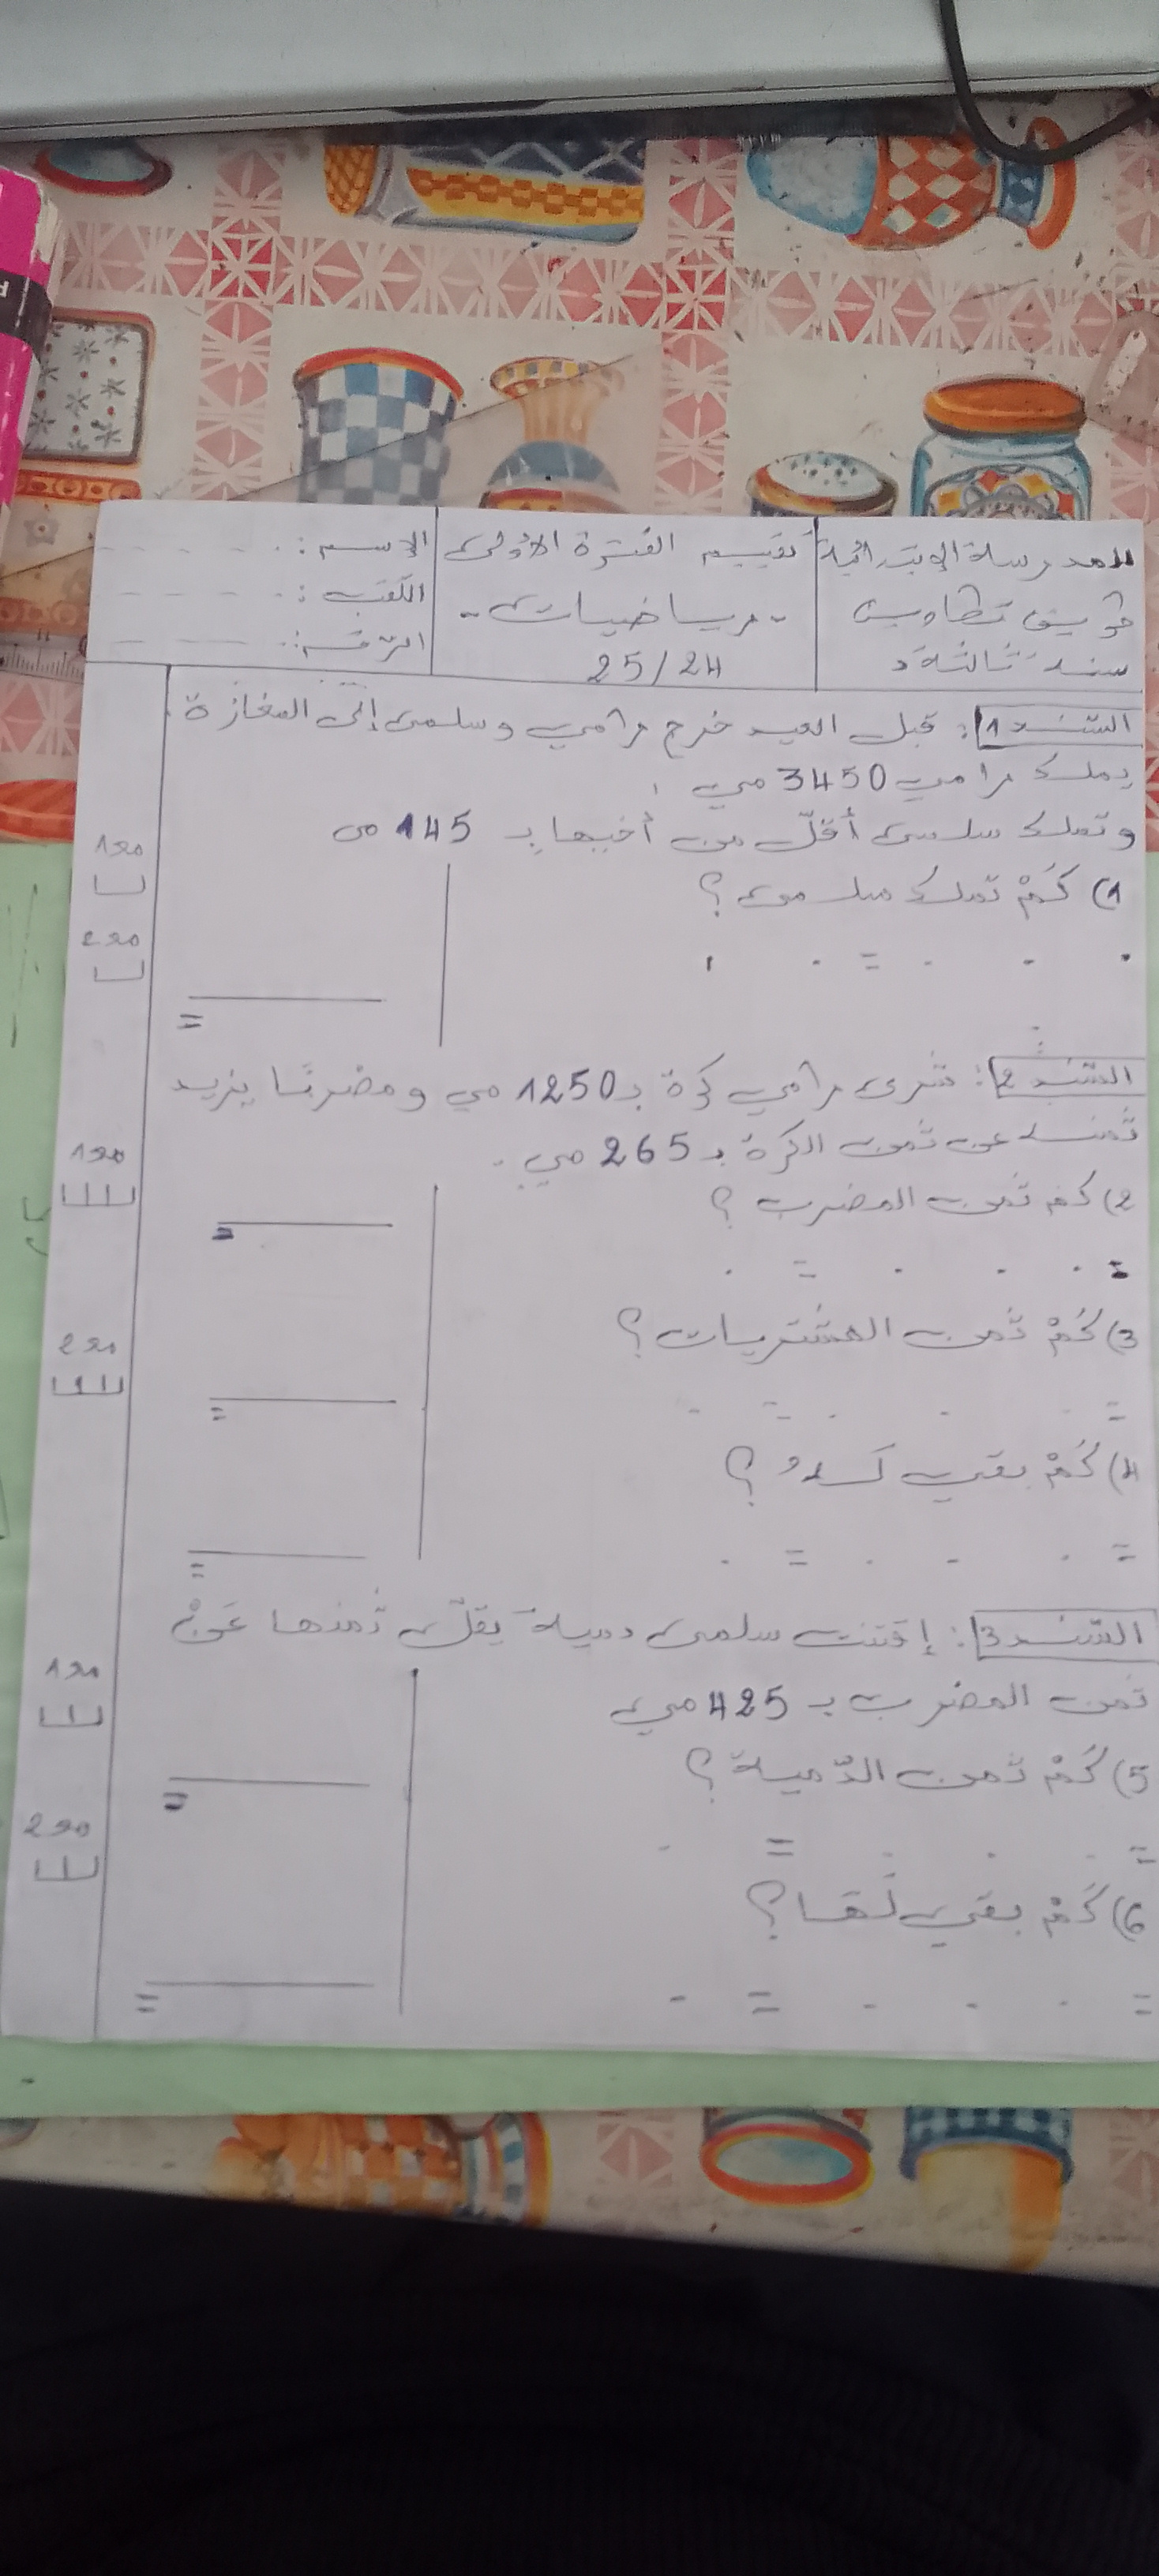 المدرسة الابتدائية
طريق تطاوين
سنة ثالثة د
تقييم الفترة الأولى
- رياضيات -
25/24
الاسم : - - - - -
اللقب : - - - -
الرقم : - - - -
السند 1 : قبل العيد خرج رامي وسلمى إلى المغازة .
يملك رامي 3450 مي
وتملك سلمى أقلّ من أخيها بـ 145 مي
1) كَمْ تملك سلمى ؟
. - . = - .
=
السند 2 : شرى رامي كرة بـ 1250 مي ومضربًا يزيد
ثمنه عن ثمن الكرة بـ 265 مي .
2) كم ثمن المضرب ؟
= . . . = .
=
3) كَمْ ثمن المشتريات ؟
= . . . = .
=
4) كَمْ بقي لَهُ ؟
= . - . = .
=
السّند 3 : إقتنت سلمى دمية يقلّ ثمنها عَنْ
ثمن المضرب بـ 425 مي
5) كَمْ ثمن الدّمية ؟
= . . . = .
=
6) كَمْ بقي لَهَا ؟
= . . . = .
=
مع 1
مع 2
مع 1
مع 2
مع 1
مع 2